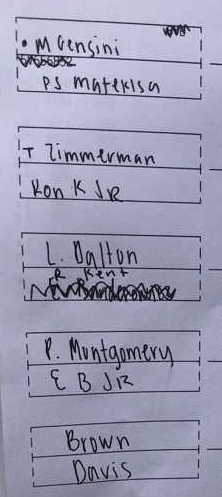 • M Gensini
PS Matekisa
T Zimmerman
Kon K JR
L. Dalton
R Kent
P. Montgomery
E B JR
Brown
Davis